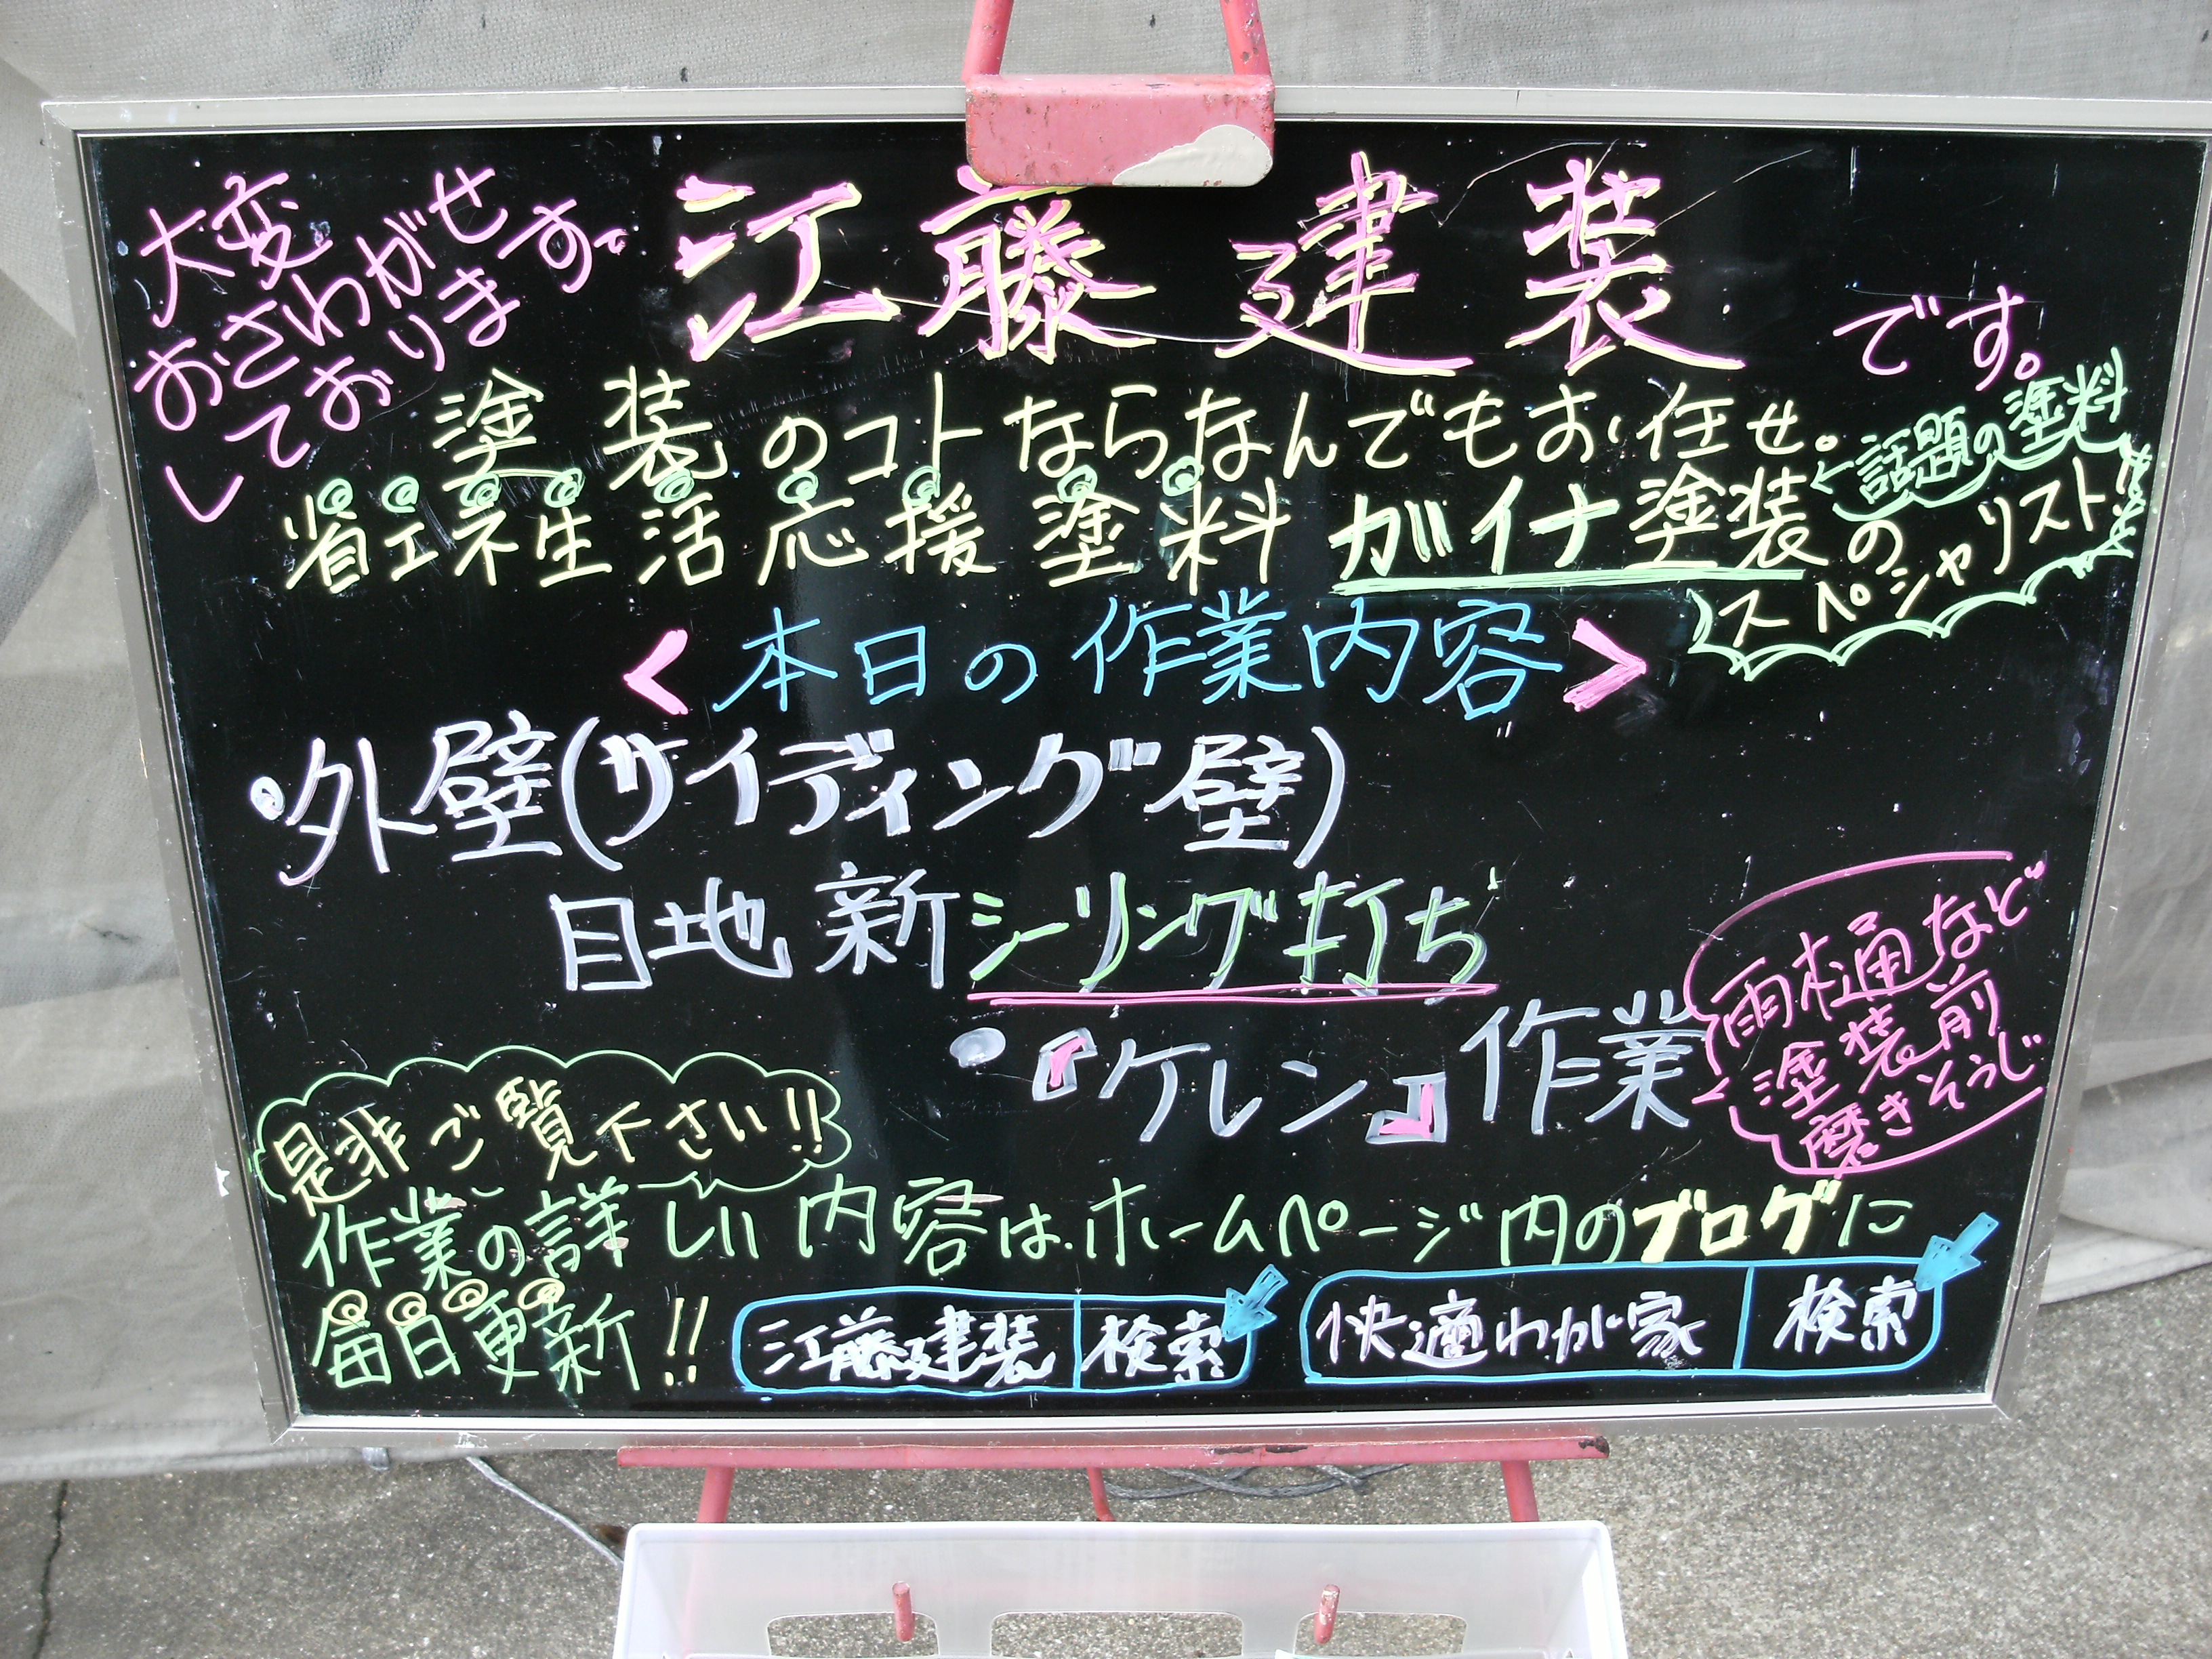 大変
おさわがせ
しております。
江藤建装
です。
塗装のコトならなんでもお任せ。
←話題の塗料
省エネ生活応援塗料 ガイナ塗装の
スペシャリスト!!
<本日の作業内容>
・外壁(サイディング壁)
目地 新シーリング打ち
・『ケレン』作業
雨樋など
塗装前
磨きそうじ
是非ご覧下さい!!
作業の詳しい内容は、ホームページ内のブログに
毎日更新!!
江藤建装 検索
快適わが家 検索